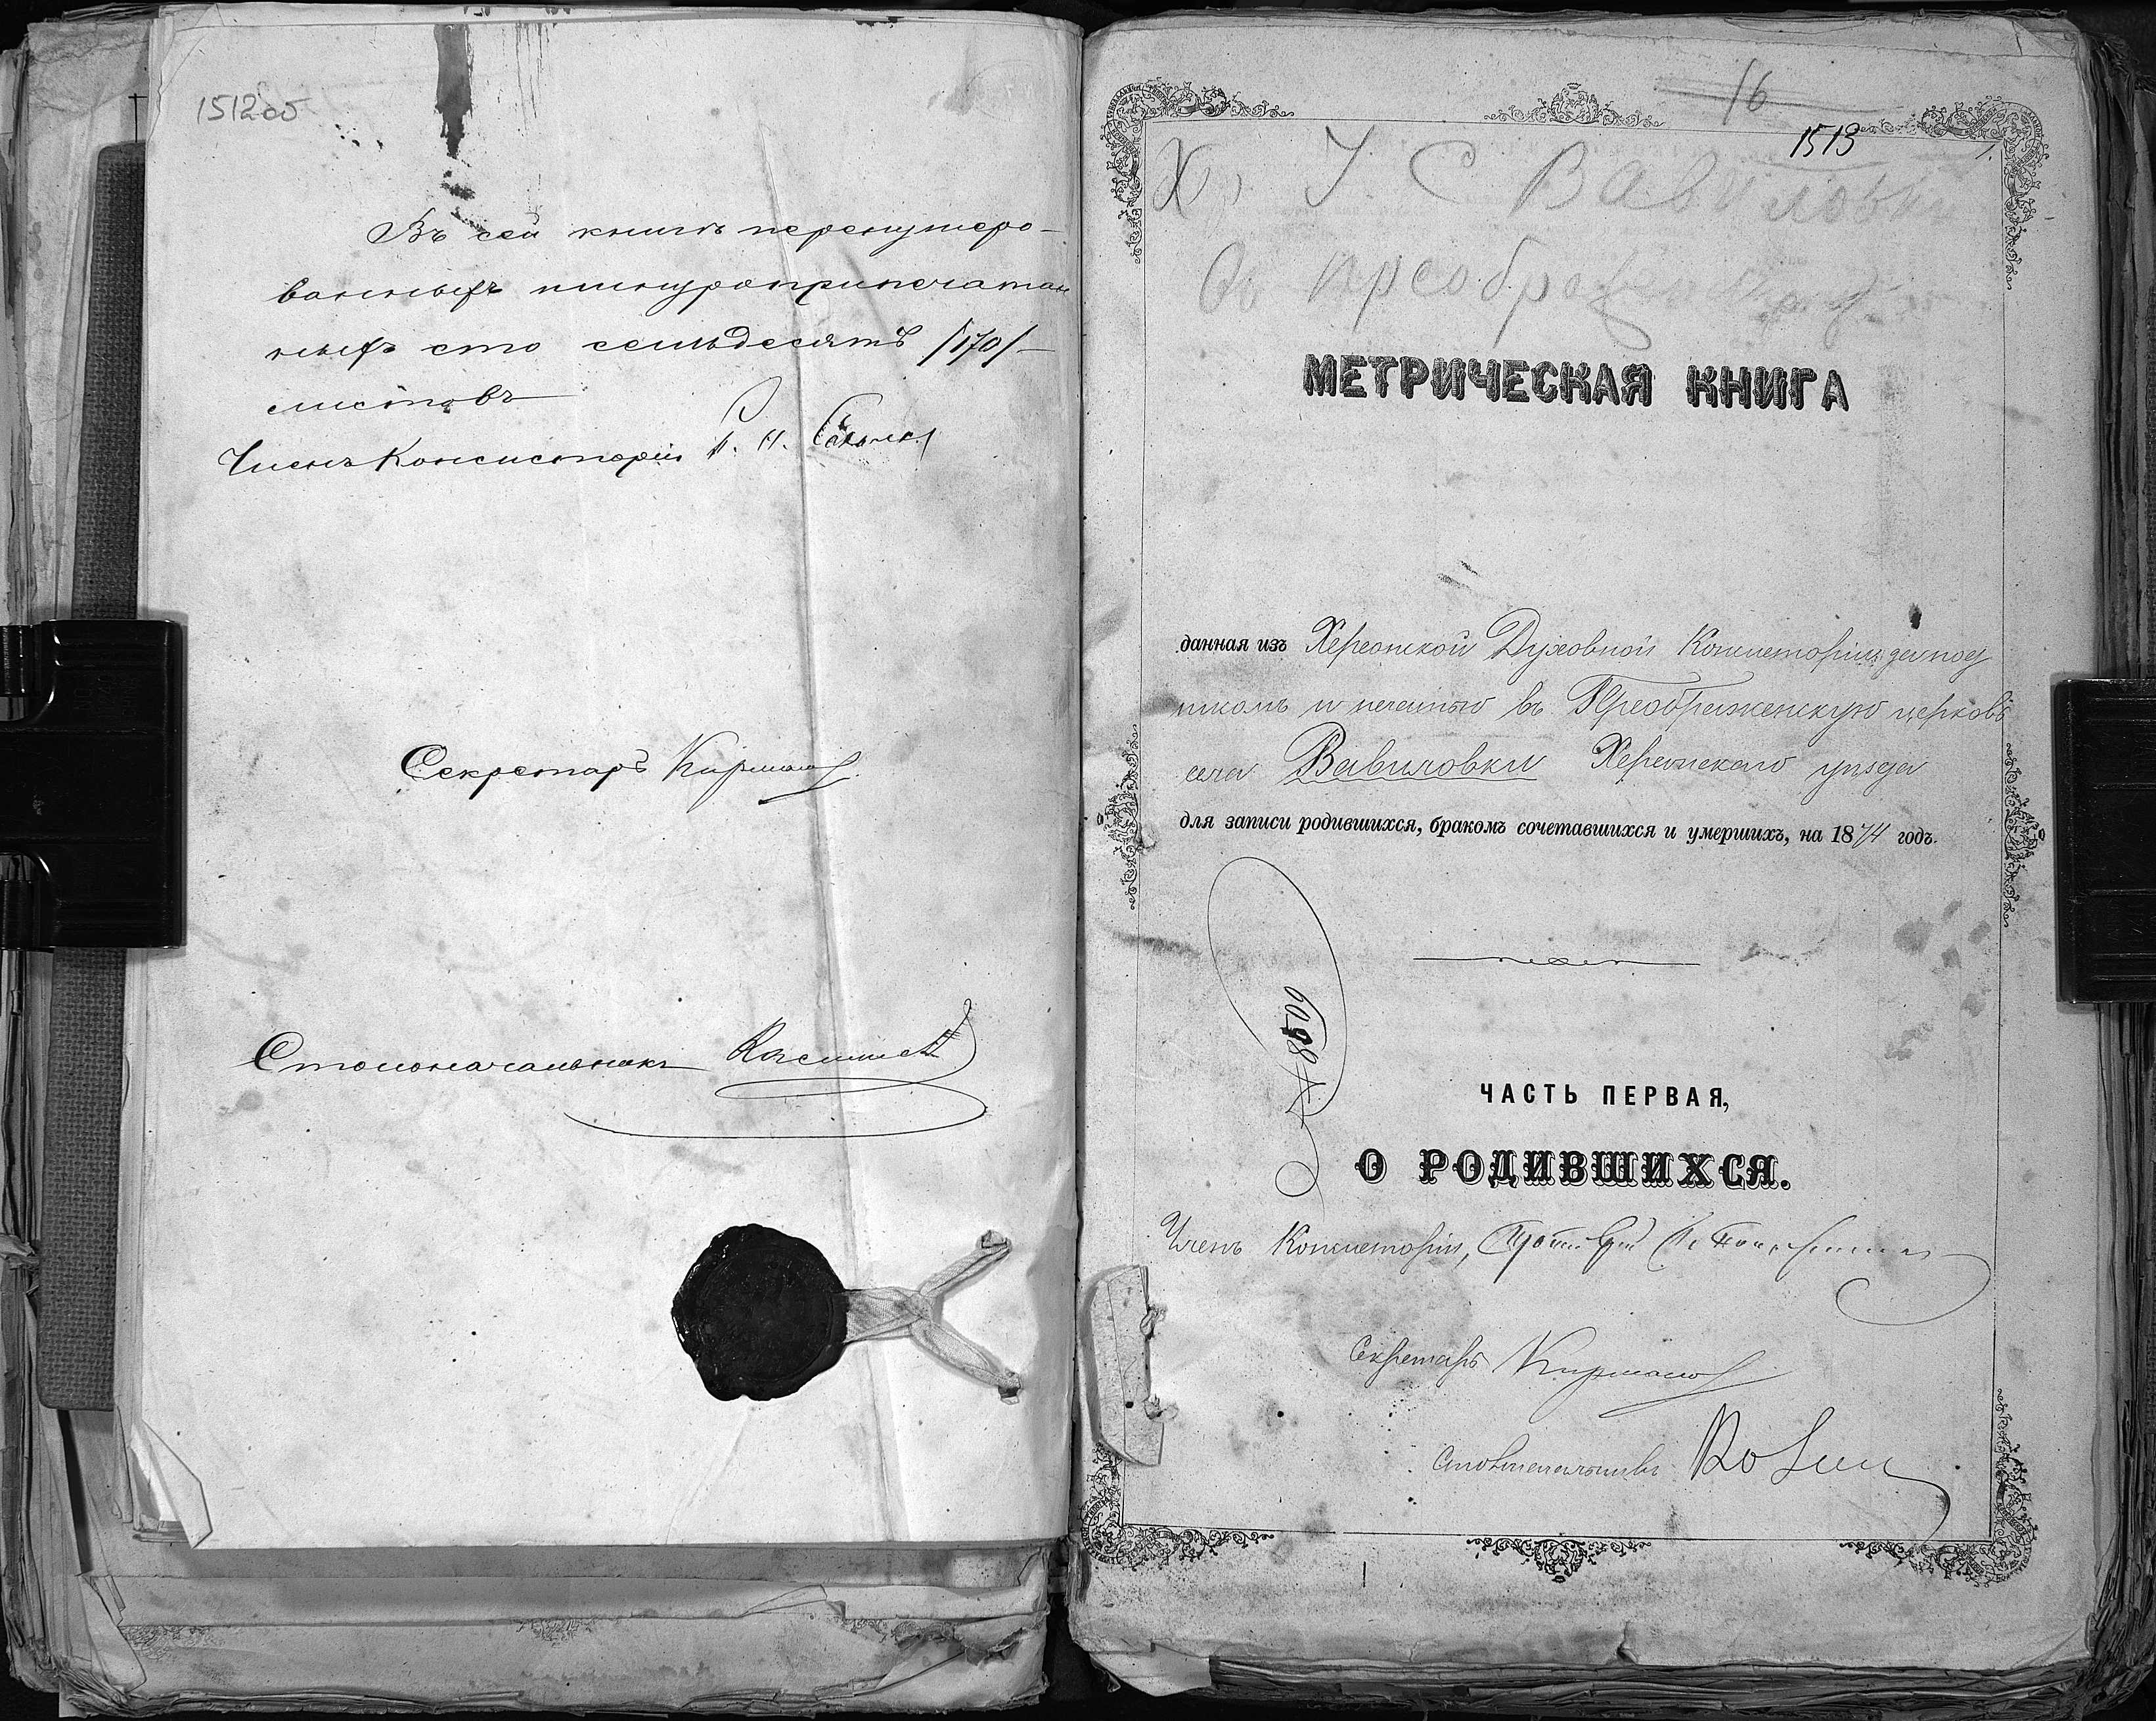 1512об
Въ сей книгѣ перенумеро-
ванныхъ шнуроприпечатан
ныхъ сто семьдесятъ /170/
листовъ
Членъ Консисторіи
Секретарь
Столоначальникъ
16
1513
Х, У С Вавиловки
Преображ
МЕТРИЧЕСКАЯ КНИГА
данная изъ Херсонской Духовной Консисторіи за под
писомъ и печатью въ Преображенскую церковь
села Вавиловки Херсонскаго уѣзда
для записи родившихся, бракомъ сочетавшихся и умершихъ, на 1874 годъ.
ЧАСТЬ ПЕРВАЯ,
О РОДИВШИХСЯ.
Членъ Консисторіи,
Секретарь
Столоначальникъ